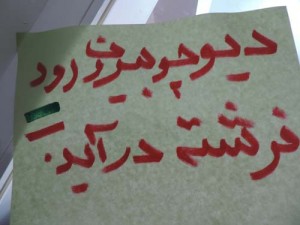 دیو چو بیرون رود
فرشته در آید.